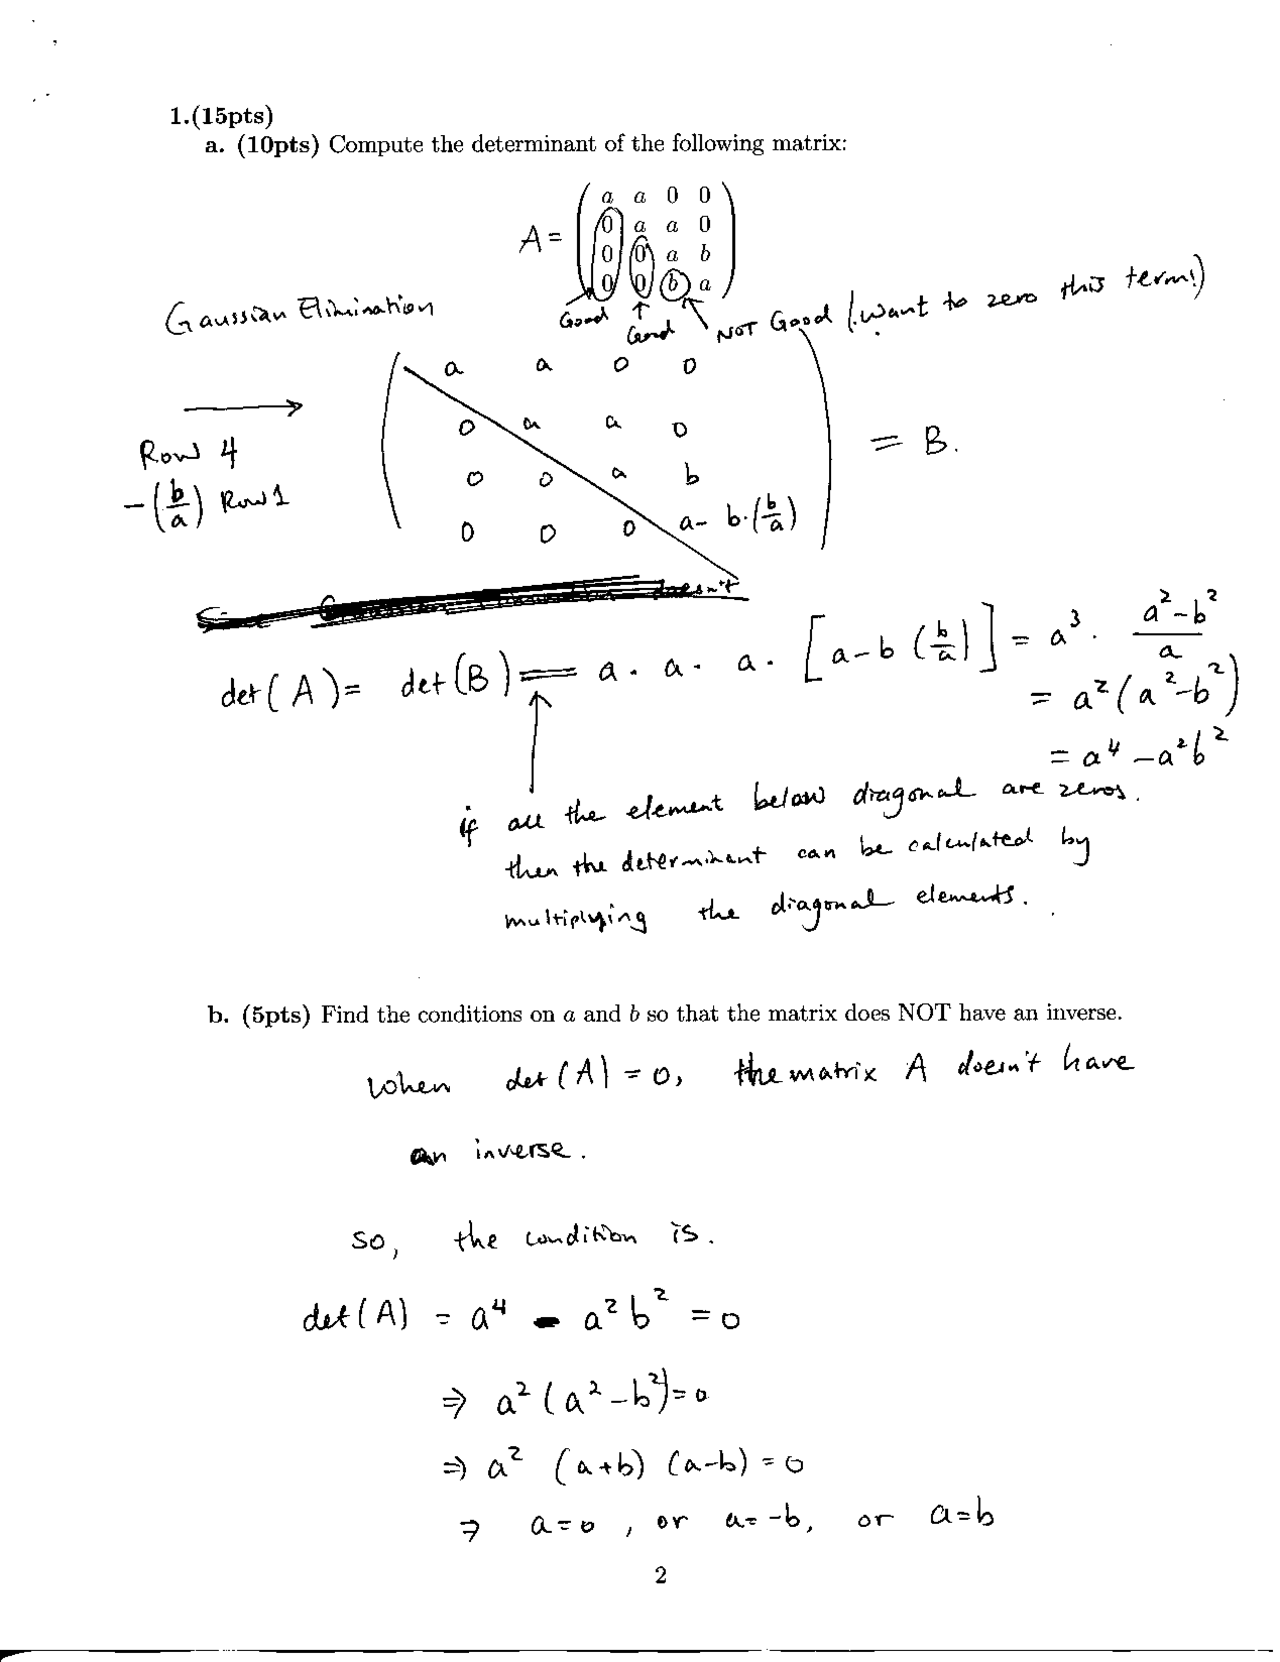 1.(15pts)
a. (10pts) Compute the determinant of the following matrix:
a a 0 0
A = 0 a a 0
0 0 a b
0 0 b a
Gaussian Elimination
Good Good NOT Good (want to zero this term!)
a a 0 0
0 a a 0
Row 4
= B.
0 0 a b
-(b/a) Row 1
0 0 0 a - b·(b/a)
doesn't
det(A) = det(B) = a · a · a · [a - b (b/a)] = a³ · (a² - b²)/a
= a² (a² - b²)
= a⁴ - a²b²
if all the element below diagonal are zeros.
then the determinant can be calculated by
multiplying the diagonal elements.
b. (5pts) Find the conditions on a and b so that the matrix does NOT have an inverse.
When det(A) = 0, the matrix A doesn't have
an inverse.
so, the condition is.
det(A) = a⁴ - a²b² = 0
⇒ a² (a² - b²) = 0
⇒ a² (a+b) (a-b) = 0
⇒ a=0, or a=-b, or a=b
2